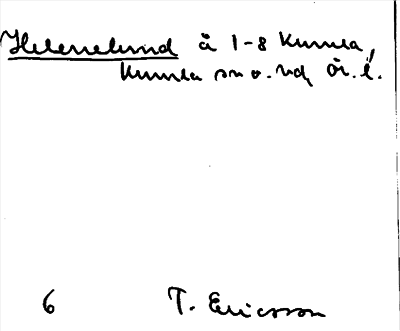 Helenelund å 1-8 Kumla,
Kumla sn o. hd, Ör. l.
6 T. Ericsson